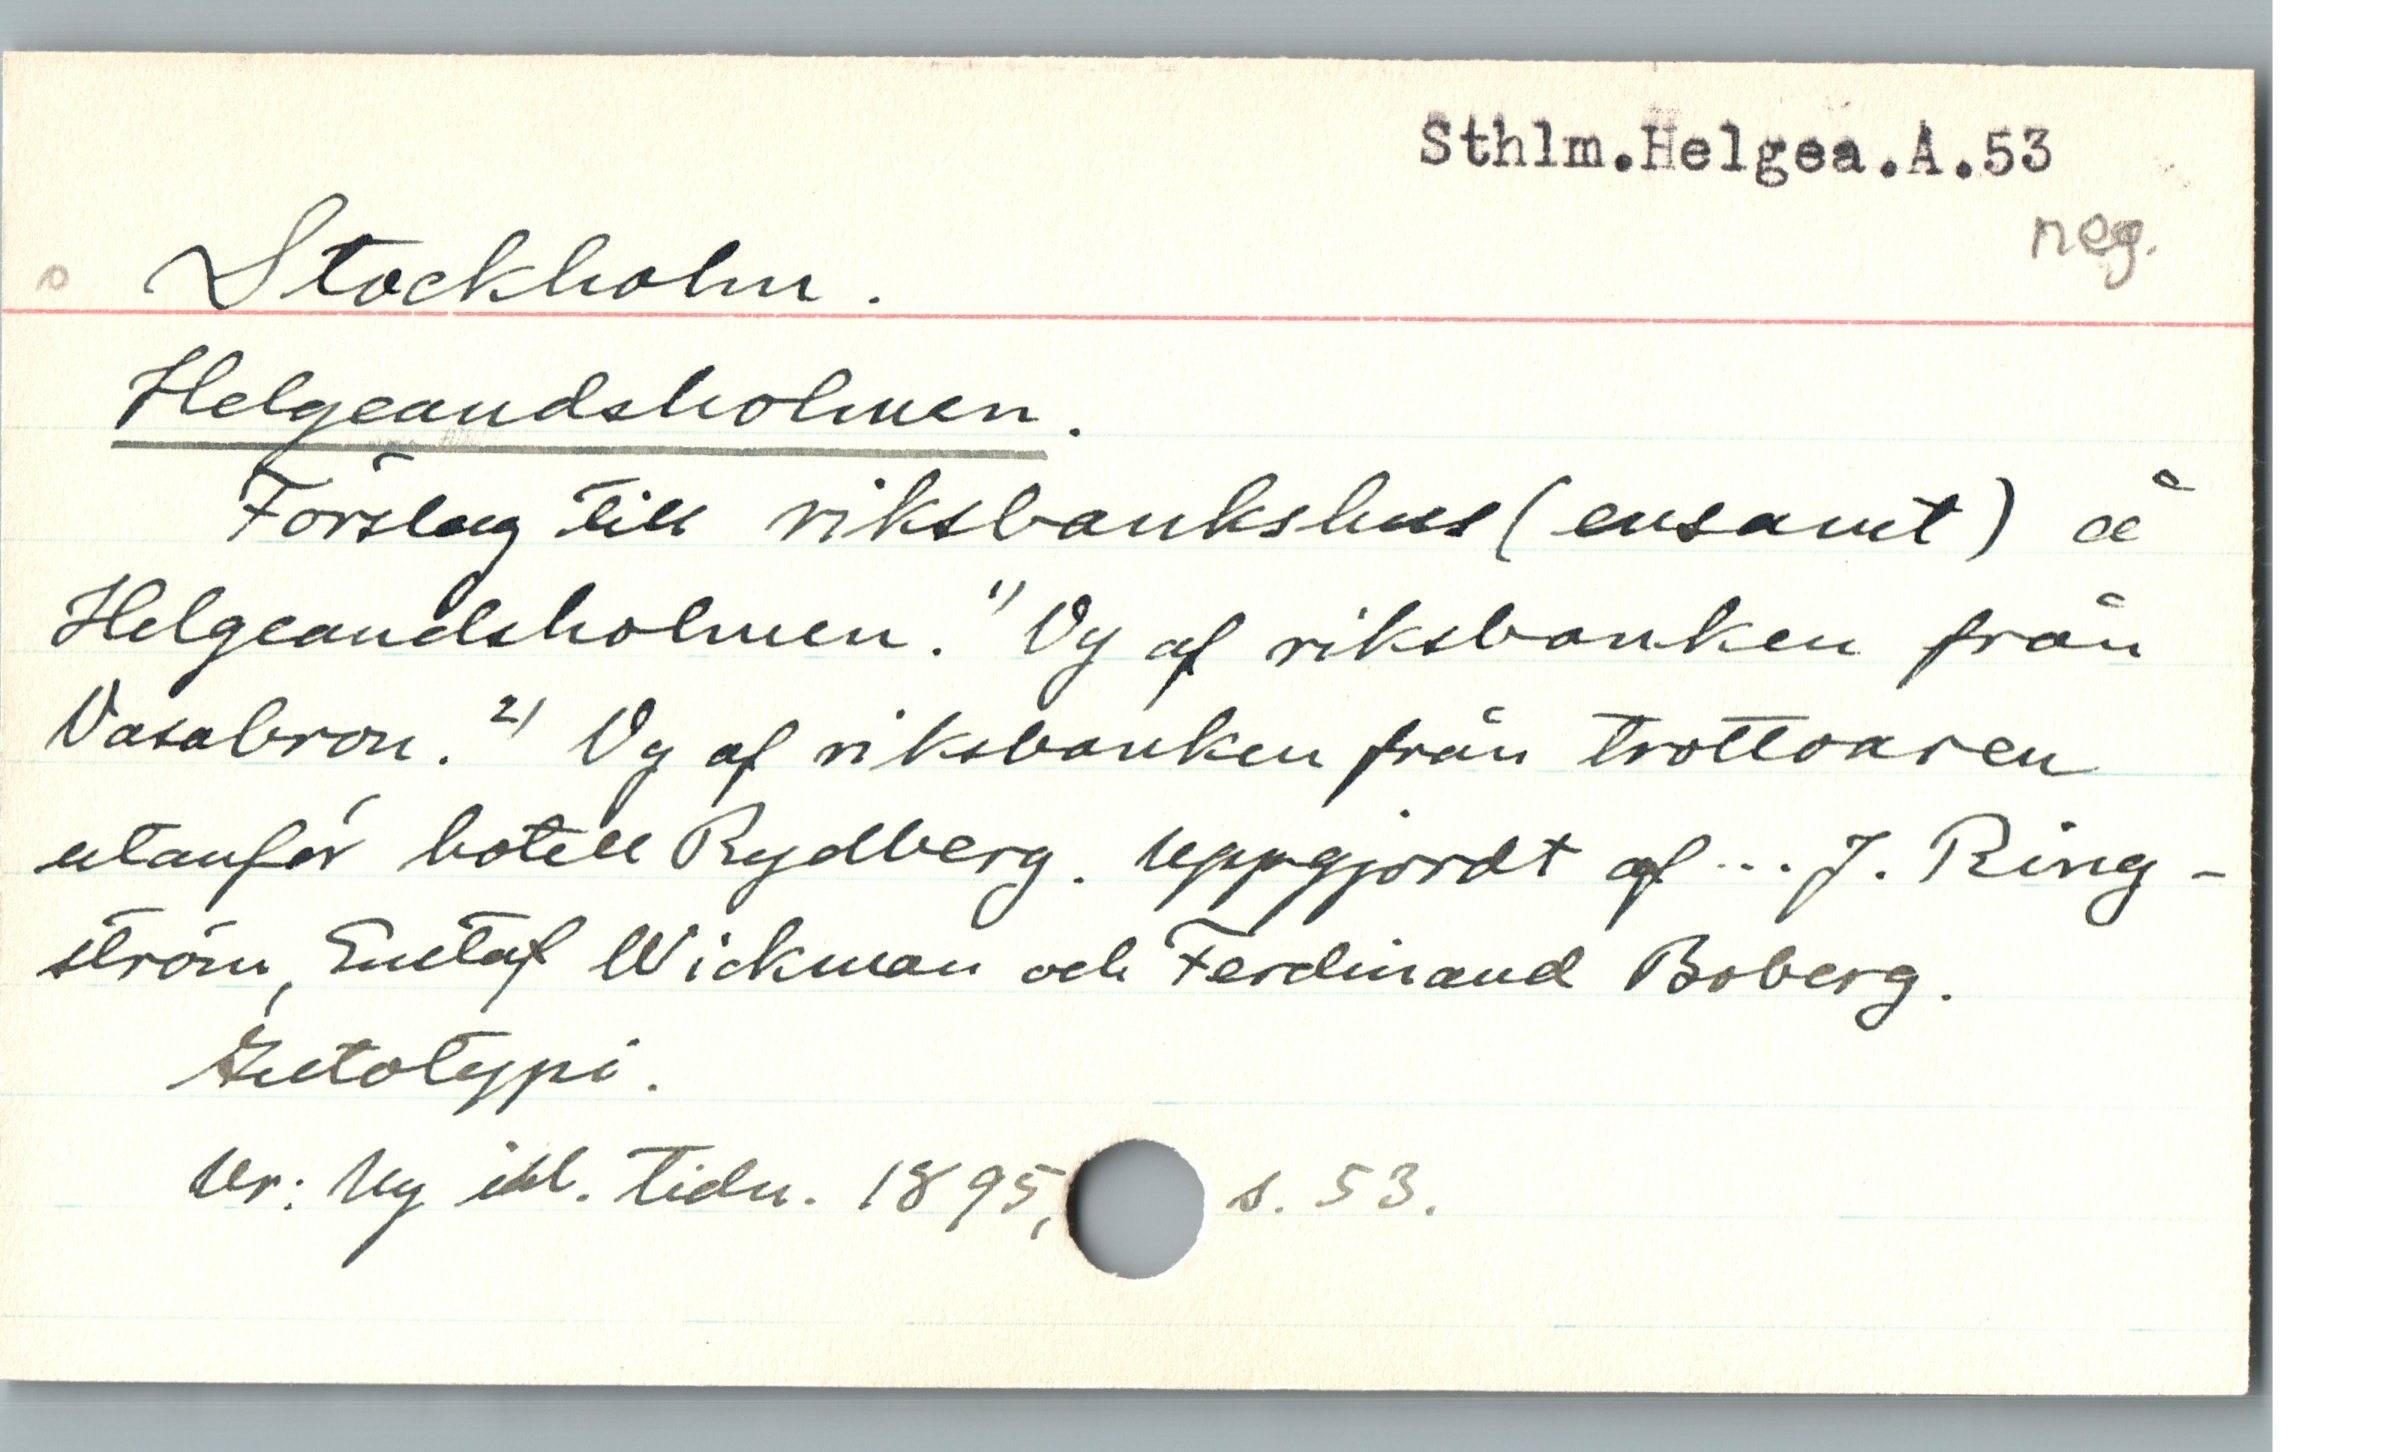 Sthlm.Helgea.A.53
neg.
Stockholm.
Helgeandsholmen.
Förslag till riksbankshus (ensamt) å
Helgeandsholmen. 1) Vy af riksbanken från
Vasabron. 2) Vy af riksbanken från trottoaren
utanför hotell Rydberg. Uppgjordt af ... J. Ring-
ström, Gustaf Wickman och Ferdinand Boberg.
Autotypi.
Ur: Ny ill. tidn. 1895, s. 53.